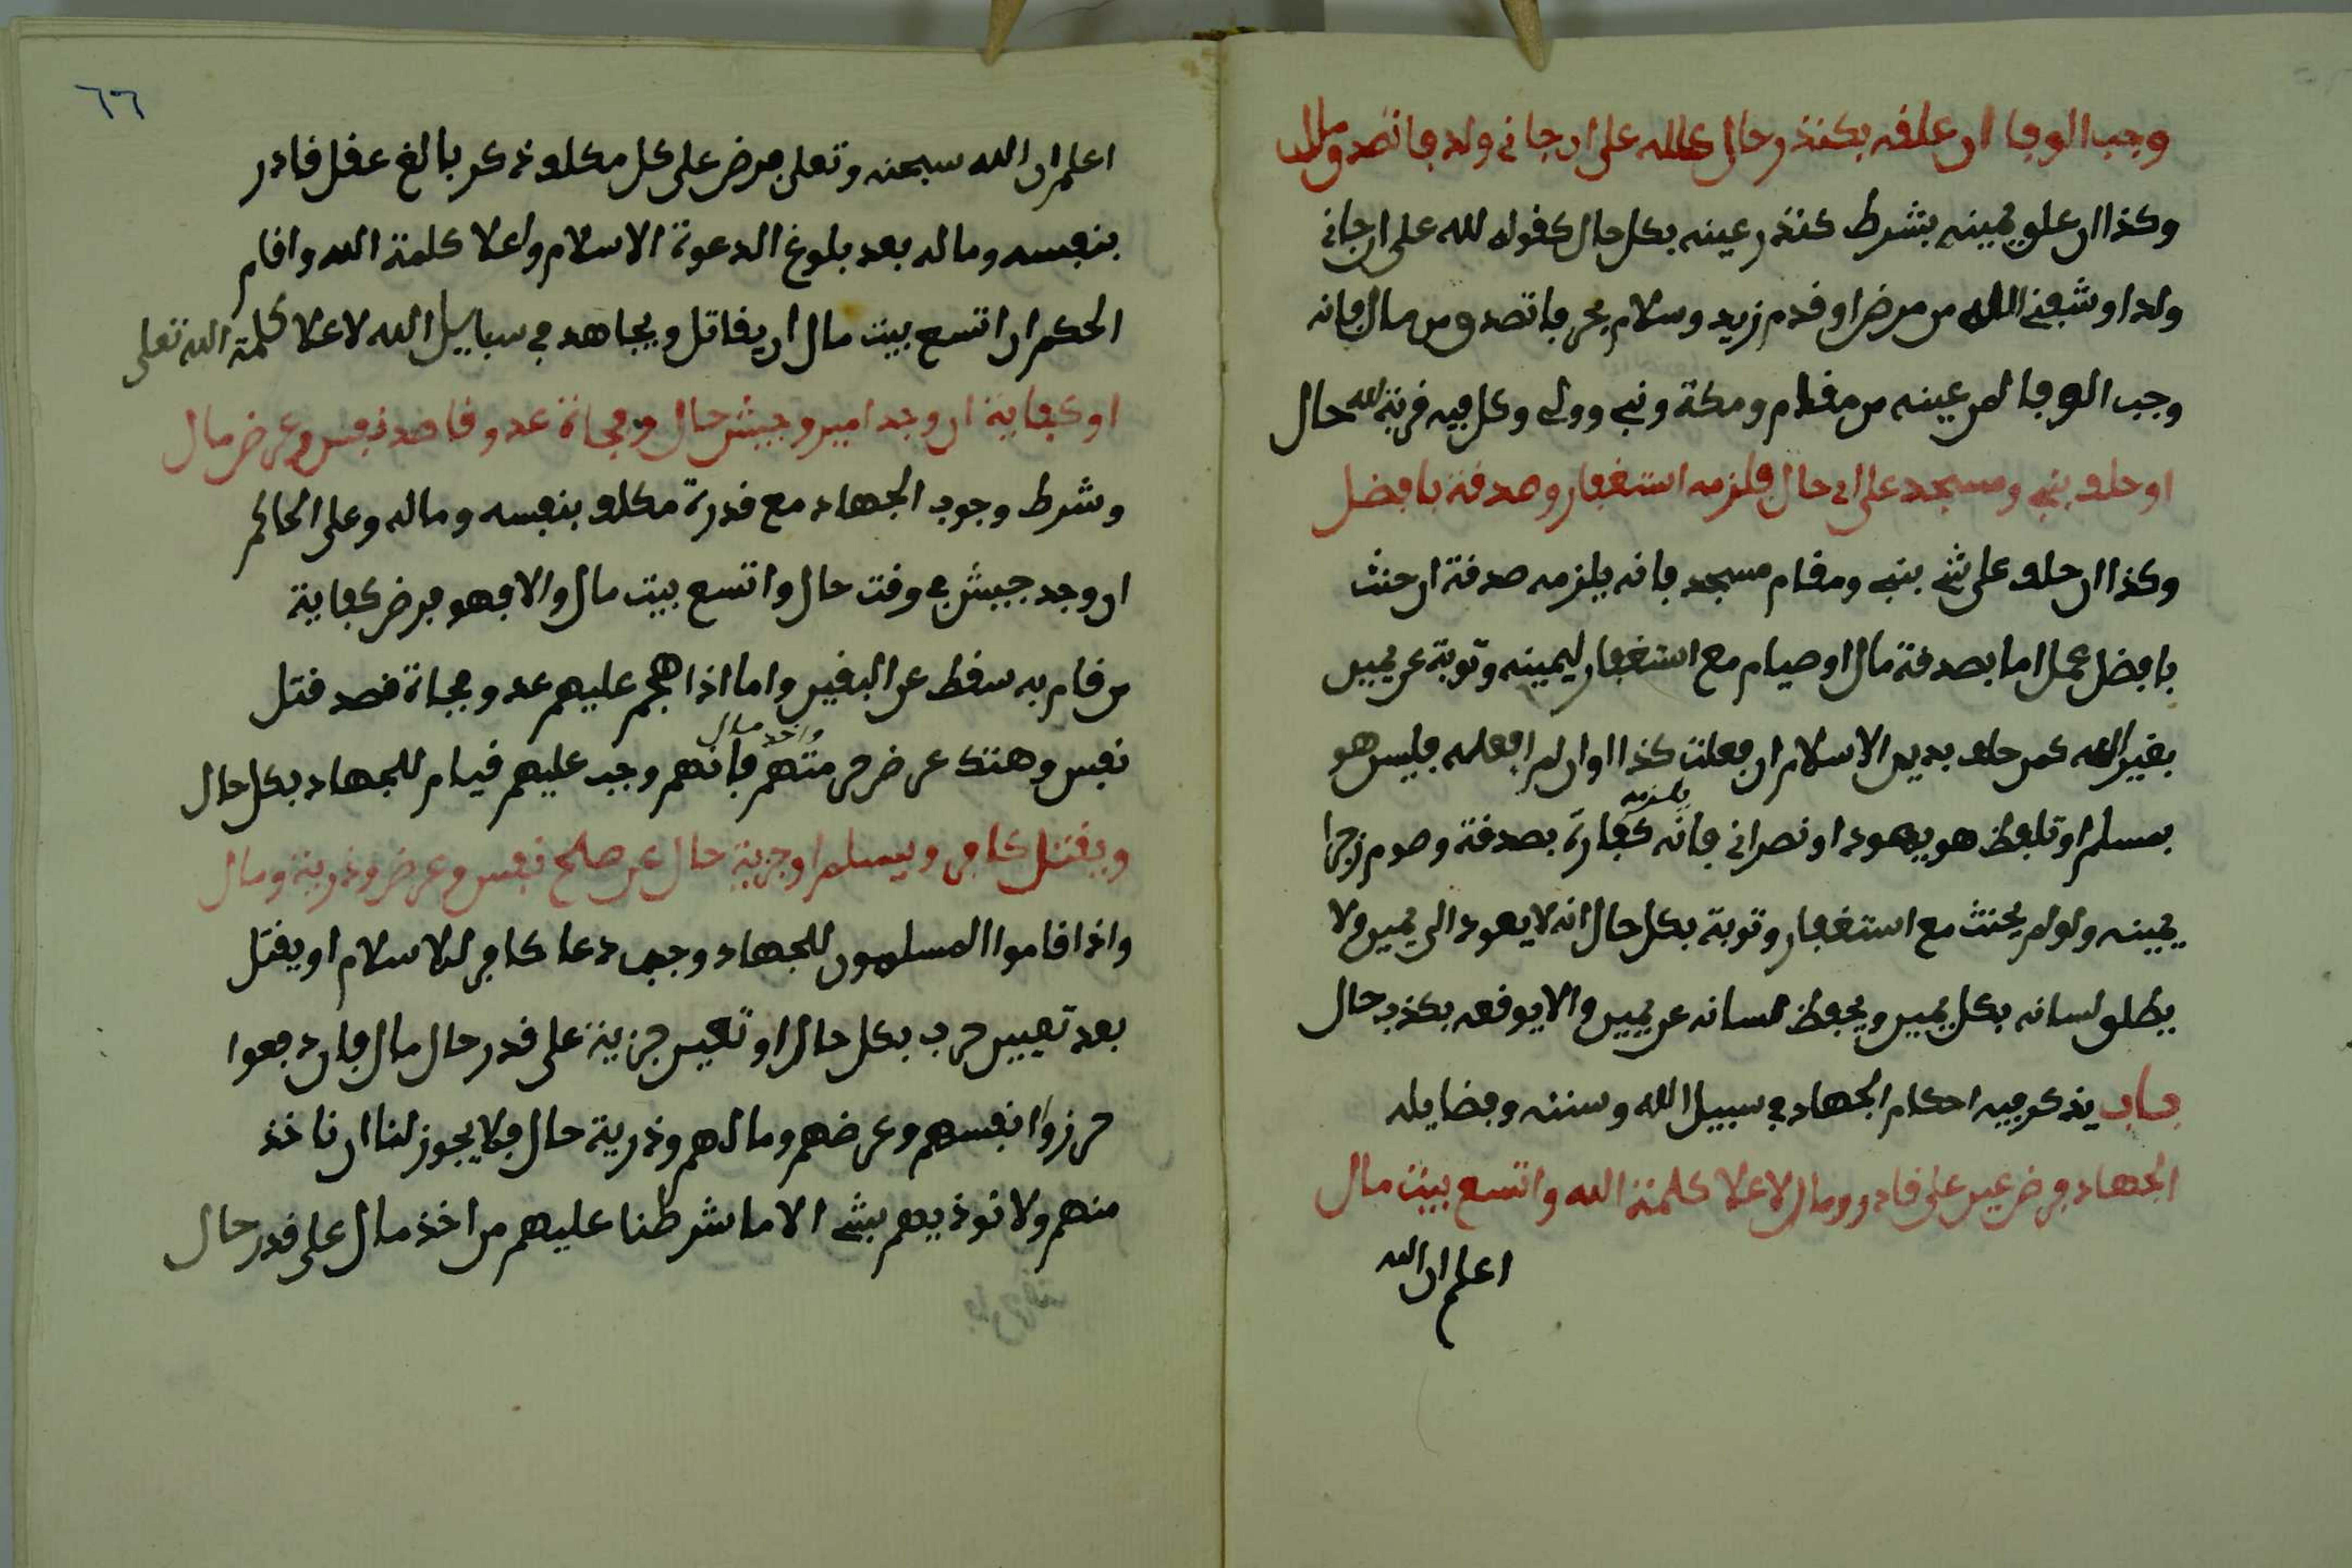 وجب الوفا ان علقه بكنذر حال كلله على ان جاني ولد فاتصدق مال
وكذا ان علق يمينه بشرط كنذر عينه بكل حال كقوله لله على ان جاني
ولد او شفني الله من مرض او قدم زيد وسلام بحر فاتصدق من مال فانه
وجب الوفا لمن عينه من مقام ومكة ونبي وولي وكل فيه قربة لله حال
او حلف بنبي ومسجد على اي حال فلزمه استغفار وصدقة بافضل
وكذا ان حلف على شي بنبي ومقام مسجد فانه يلزمه صدقة ان حنث
بافضل عمل اما بصدقة مال او صيام مع استغفار ليمينه وتوبة عن يمين
بغير الله كمن حلف بدين الاسلام ان فعلت كذا او ان لم افعله فليس هو
بمسلم او تلفظ هو يهود او نصراني فانه يلزمه كفارة بصدقة وصوم زجرا
يمينه ولو لم يحنث مع استغفار وتوبة بكل حال انه لا يعود الى يمين ولا
يطلق لسانه بكل يمين ويحفظ لسانه عن يمين والا يوقعه بكذب حال
باب يذكر فيه احكام الجهاد في سبيل الله وسننه وفضايله
الجهاد فرض عين على قادر ومال لاعلا كلمة الله واتسع بيت مال
اعلم ان الله
٦٦
اعلم ان الله سبحنه وتعلى فرض على كل مكلف ذكر بالغ عقل قادر
بنفسه وماله بعد بلوغ الدعوة الاسلام واعلا كلمة الله واقام
الحكم ان اتسع بيت مال ان يقاتل ويجاهد في سبابيل الله لاعلا كلمة الله تعلى
او كفاية ان وجد امير وجيش حال وفجاة عدو قاصد نفس وعرض مال
وشرط وجوب الجهاد مع قدرة مكلف بنفسه وماله وعلى الحاكم
ان وجد جيش في وقت حال واتسع بيت مال والا فهو فرض كفاية
من قام به سقط عن البقين واما اذا هجم عليهم عدو فجاة قصد قتل
نفس وهتك عرض حرمتهم واخذ مال فانهم وجب عليهم قيام للجهاد بكل حال
ويقتل كافر ويسلم او جزية حال عن صلح نفس وعرض وذرية ومال
واذا قاموا المسلمون للجهاد وجب دعا كافر للاسلام او يقتل
بعد تعيين حرب بكل حال او تعين جزية على قدر حال مال فان دفعوا
حرزوا انفسهم وعرضهم ومالهم وذرية حال فلا يجوز لنا ان ناخذ
منهم ولا نوذيهم بشي الا ما شرطنا عليهم من اخذ مال على قدر حال